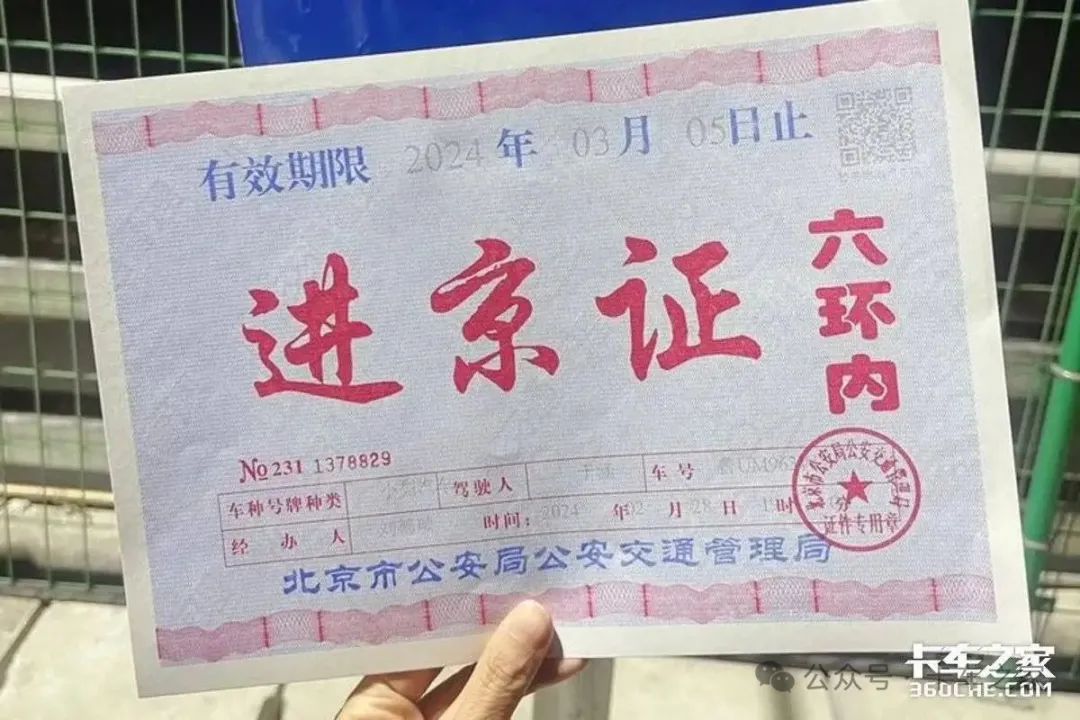 有效期限 2024 年 03 月 05 日止
进京证
六环内
No 231 1378829
车种号牌种类 驾驶人 车号 鲁UM963
经办人 时间: 2024 年 02 月 28 日 1 时 分
北京市公安局公安交通管理局
证件专用章
北京市公安局公安交通管理局
公众号
卡车之家
360CHE.COM